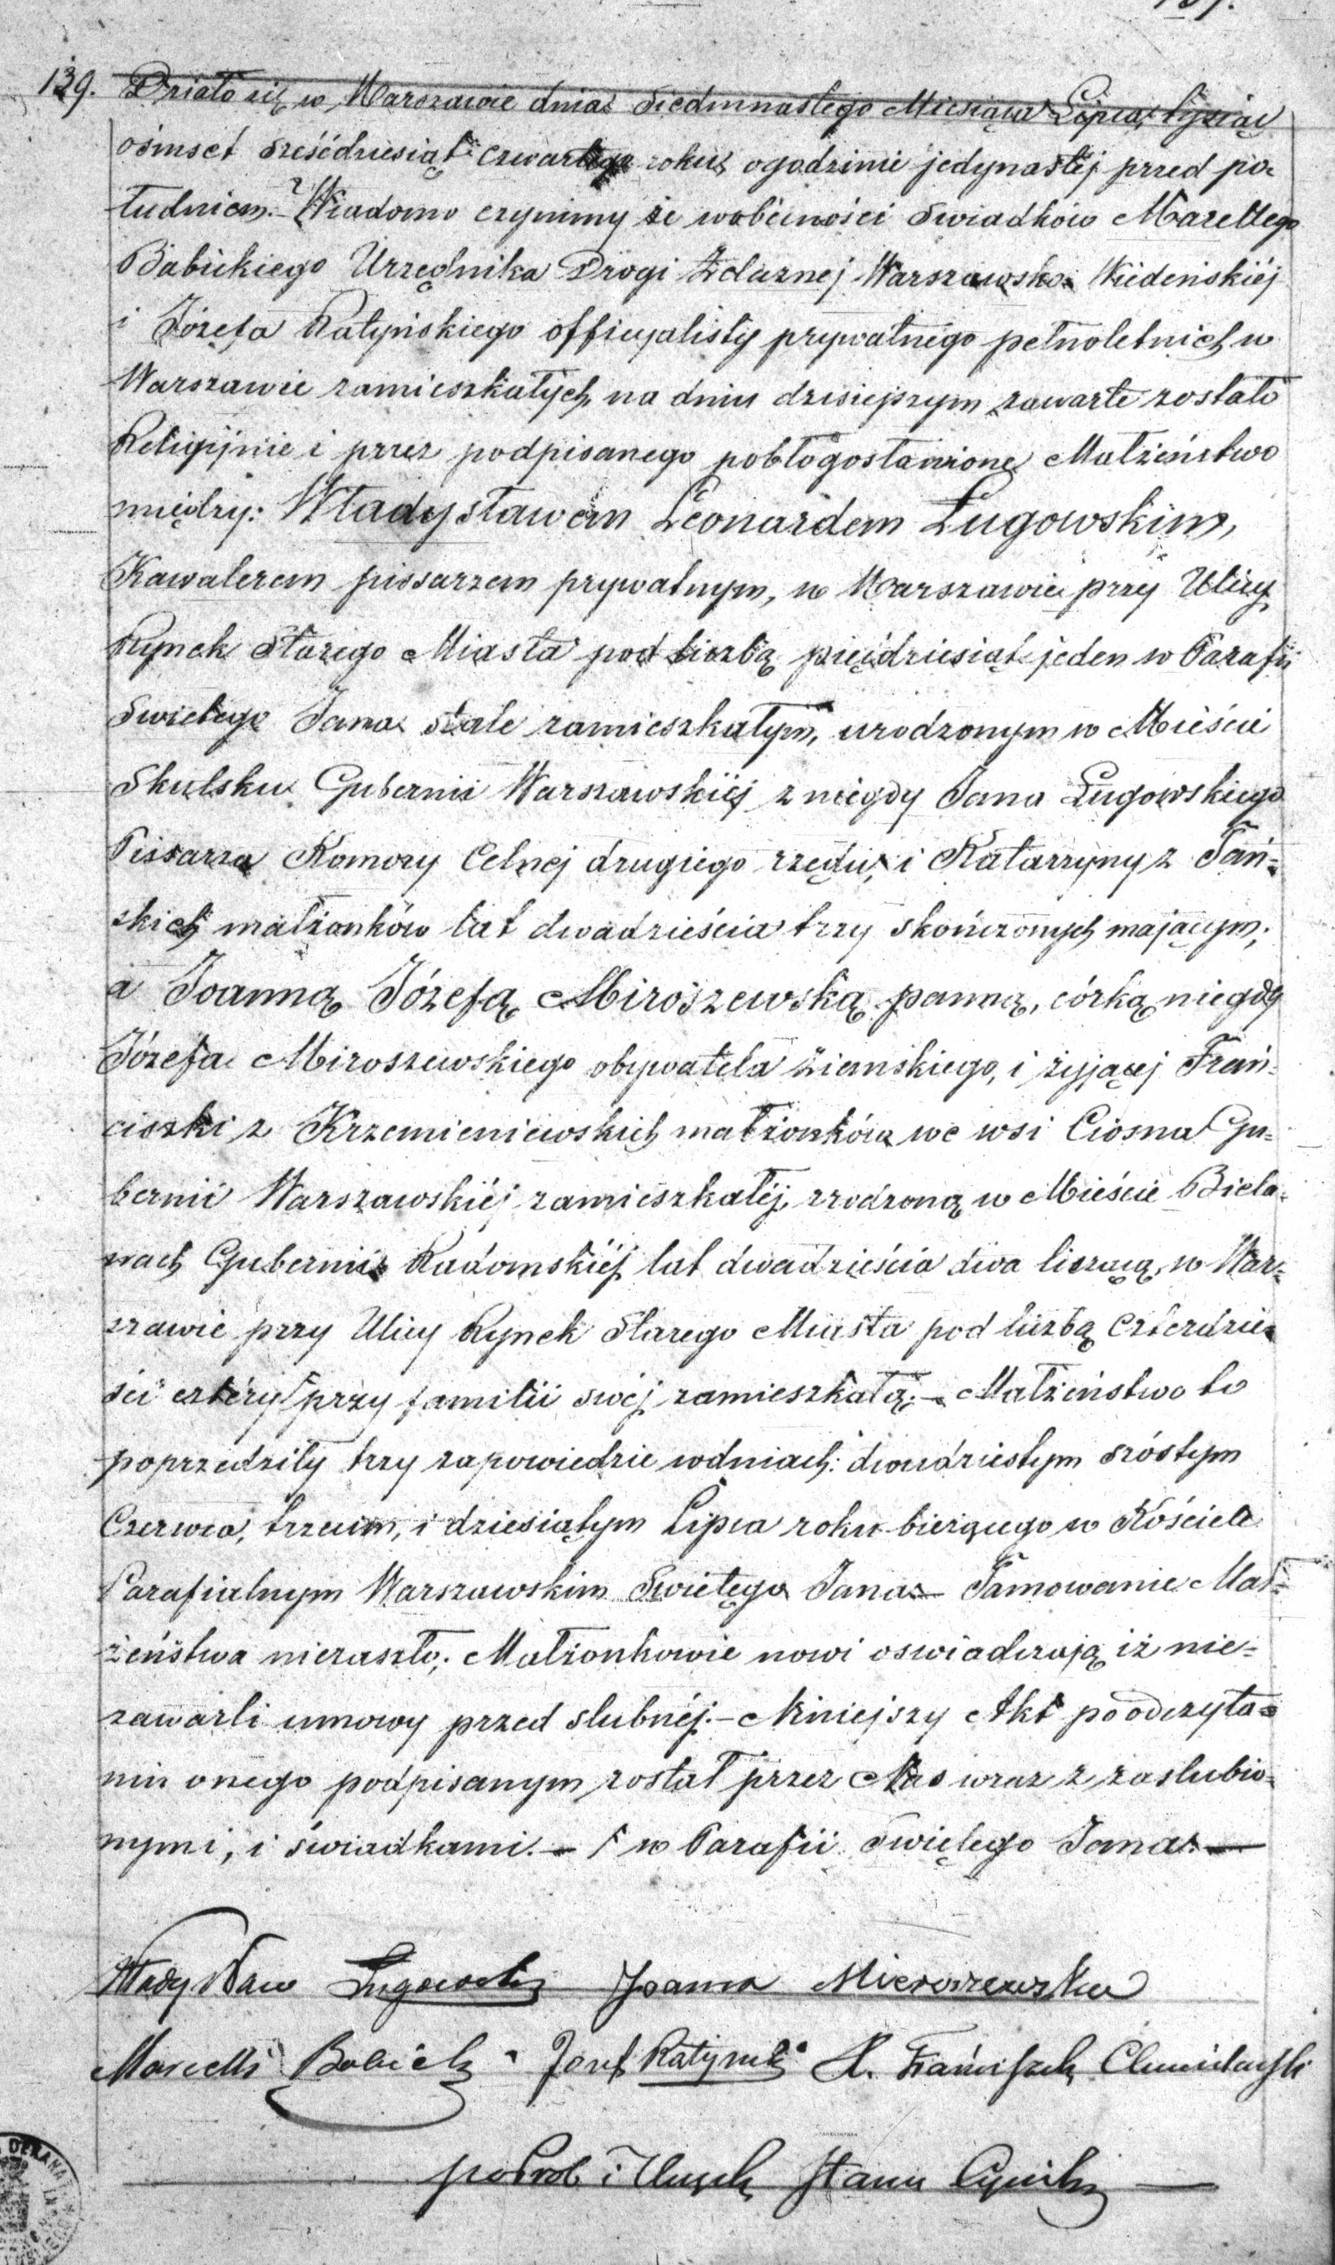 139. Działo się w Warszawie dnia Siedmnastego Miesiąca Lipca tysiąc
ośmset sześćdziesiąt czwartego roku, o godzinie jedynastéj przed po-
łudniem.- Wiadomo czynimy że w obecności Swiadków Marcellego
Babickiego Urzędnika Drogi Żelaznej Warszawsko Wiedeńskiéj
i Józefa Ratyńskiego officyalisty prywatnego pełnoletnich w
Warszawie zamieszkałych, na dniu dzisiejszym zawarte zostało
Religijnie i przez podpisanego pobłogosławione Małżeństwo
między: Władysławem Leonardem Ługowskim,
Kawalerem pissarzem prywatnym, w Warszawie przy Ulicy
Rynek Starego Miasta pod liczbą pięćdziesiąt jeden w Parafii
Swietego Jana stale zamieszkałym, urodzonym w Mieście
Skulsku Gubernii Warszawskiéj z niegdy Jana Ługowskiego
Pissarza Komory Celnej drugiego rzędu, i Katarzyny z Tań-
skich małżonków lat dwadzieścia trzy skończonych mającym;
a Joanną Józefą Miroszewską panną, córką niegdy
Józefa Miroszewskiego obywatela Ziemskiego, i żyjącej Fran-
ciszki z Krzemieniewskich małżonków we wsi Ciosna Gu-
bernii Warszawskiéj zamieszkałéj, zrodzoną w Mieście Biela-
wach Gubernii Radomskiéj lat dwadzieścia dwa liczącą, w War-
szawie przy Ulicy Rynek Starego Miasta pod liczbą czterdzie-
ści cztéry przy familii swéj zamieszkałą.- Małżeństwo to
poprzedziły trzy zapowiedzie w dniach: dwudziestym szóstym
Czerwca, trzecim, i dziesiątym Lipca roku bieżącego w Kościele
Parafialnym Warszawskim Swietego Jana- Tamowanie Mał-
żeństwa nie zaszło; Małżonkowie nowi oswiadczają iż nie-
zawarli umowy przed slubnéj.- Niniejszy Akt po odczyta-
niu onego podpisanym został przez Nas wraz z zaslubio-
nymi, i świadkami.- w Parafii Swiętego Jana.-
Władysław Ługowski Joanna Mieroszewska
Marcelli Babicki Józef Ratyński X. Franciszek
Stanu Cywiln